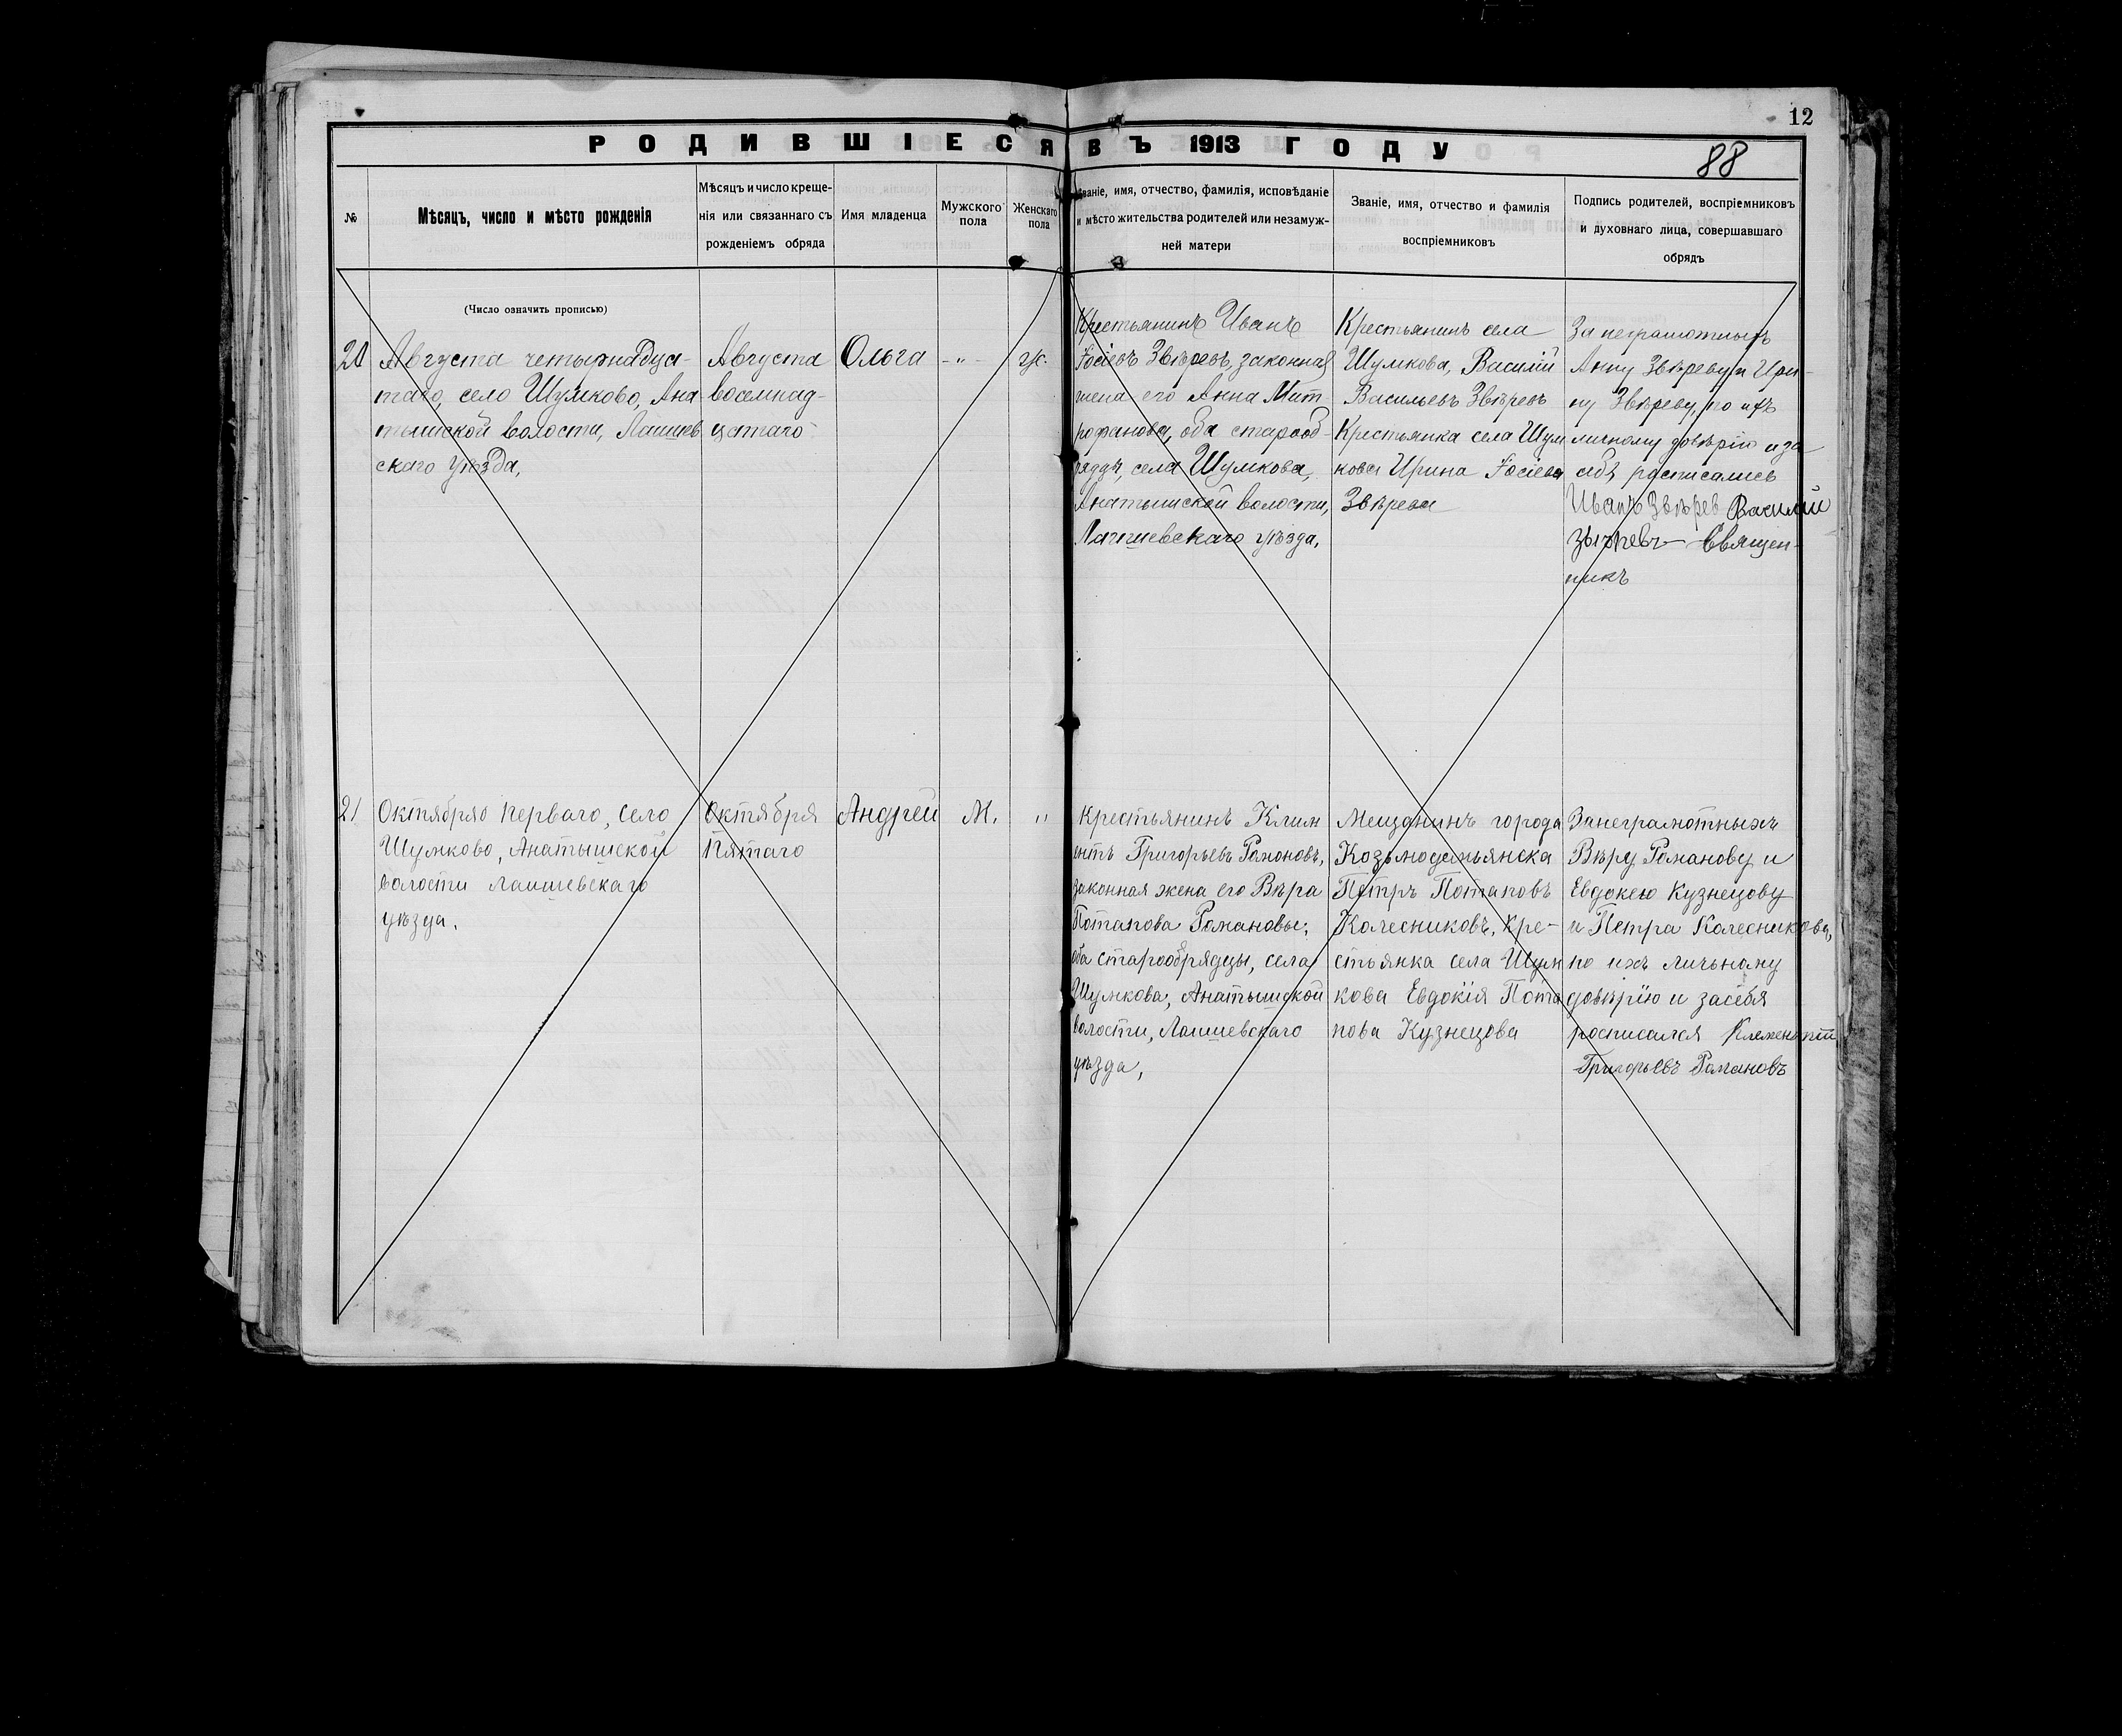 12
РОДИВШІЕСЯ ВЪ 1913 ГОДУ
88
№
Мѣсяцъ, число и мѣсто рожденія
Мѣсяцъ и число креще-
нія или связаннаго съ
рожденіемъ обряда
Имя младенца
Мужского
пола
Женскаго
пола
Званіе, имя, отчество, фамилія, исповѣданіе
и мѣсто жительства родителей или незамуж-
ней матери
Званіе, имя, отчество и фамилія
воспріемниковъ
Подпись родителей, воспріемниковъ
и духовнаго лица, совершавшаго
обрядъ
(Число означить прописью)
20
Августа четырнадца-
таго, село Шумково, Ана
тышской волости, Лаишев
скаго уѣзда,
Августа
восемнад-
цатаго
Ольга
- " -
ж.
Крестьянинъ Иванъ
Іосіевъ Звѣревъ, законная
жена его Анна Мит
рофанова, оба старооб-
рядцы, села Шумкова,
Анатышской волости,
Лаишевскаго уѣзда,
Крестьянинъ села
Шумкова, Василій
Васильевъ Звѣревъ
Крестьянка села Шум
кова Ирина Іосіева
Звѣрева
За неграмотныхъ
Анну Звѣреву и Ири-
ну Звѣреву, по ихъ
личному довѣрію и за
себя росписались
Иванъ Звѣрев Василий
Звѣревъ Священ-
никъ
21
Октября перваго, село
Шумково, Анатышской
волости Лаишевскаго
уѣзда.
Октября
Пятаго
Андрей
М.
"
Крестьянинъ Клим
ентъ Григорьевъ Романовъ,
законная жена его Вѣра
Потапова Романовы;
оба старообрядцы, села
Шумкова, Анатышской
волости, Лаишевскаго
уѣзда,
Мещанинъ города
Козьмодемьянска
Петръ Потаповъ
Колесниковъ, Кре-
стьянка села Шум
кова Евдокія Пота
пова Кузнецова
Занеграмотныхъ
Вѣру Романову и
Евдокею Кузнецову
и Петра Колесникова,
по ихъ личьному
довѣрію и засебя
росписался Клементий
Григорьевъ Романовъ